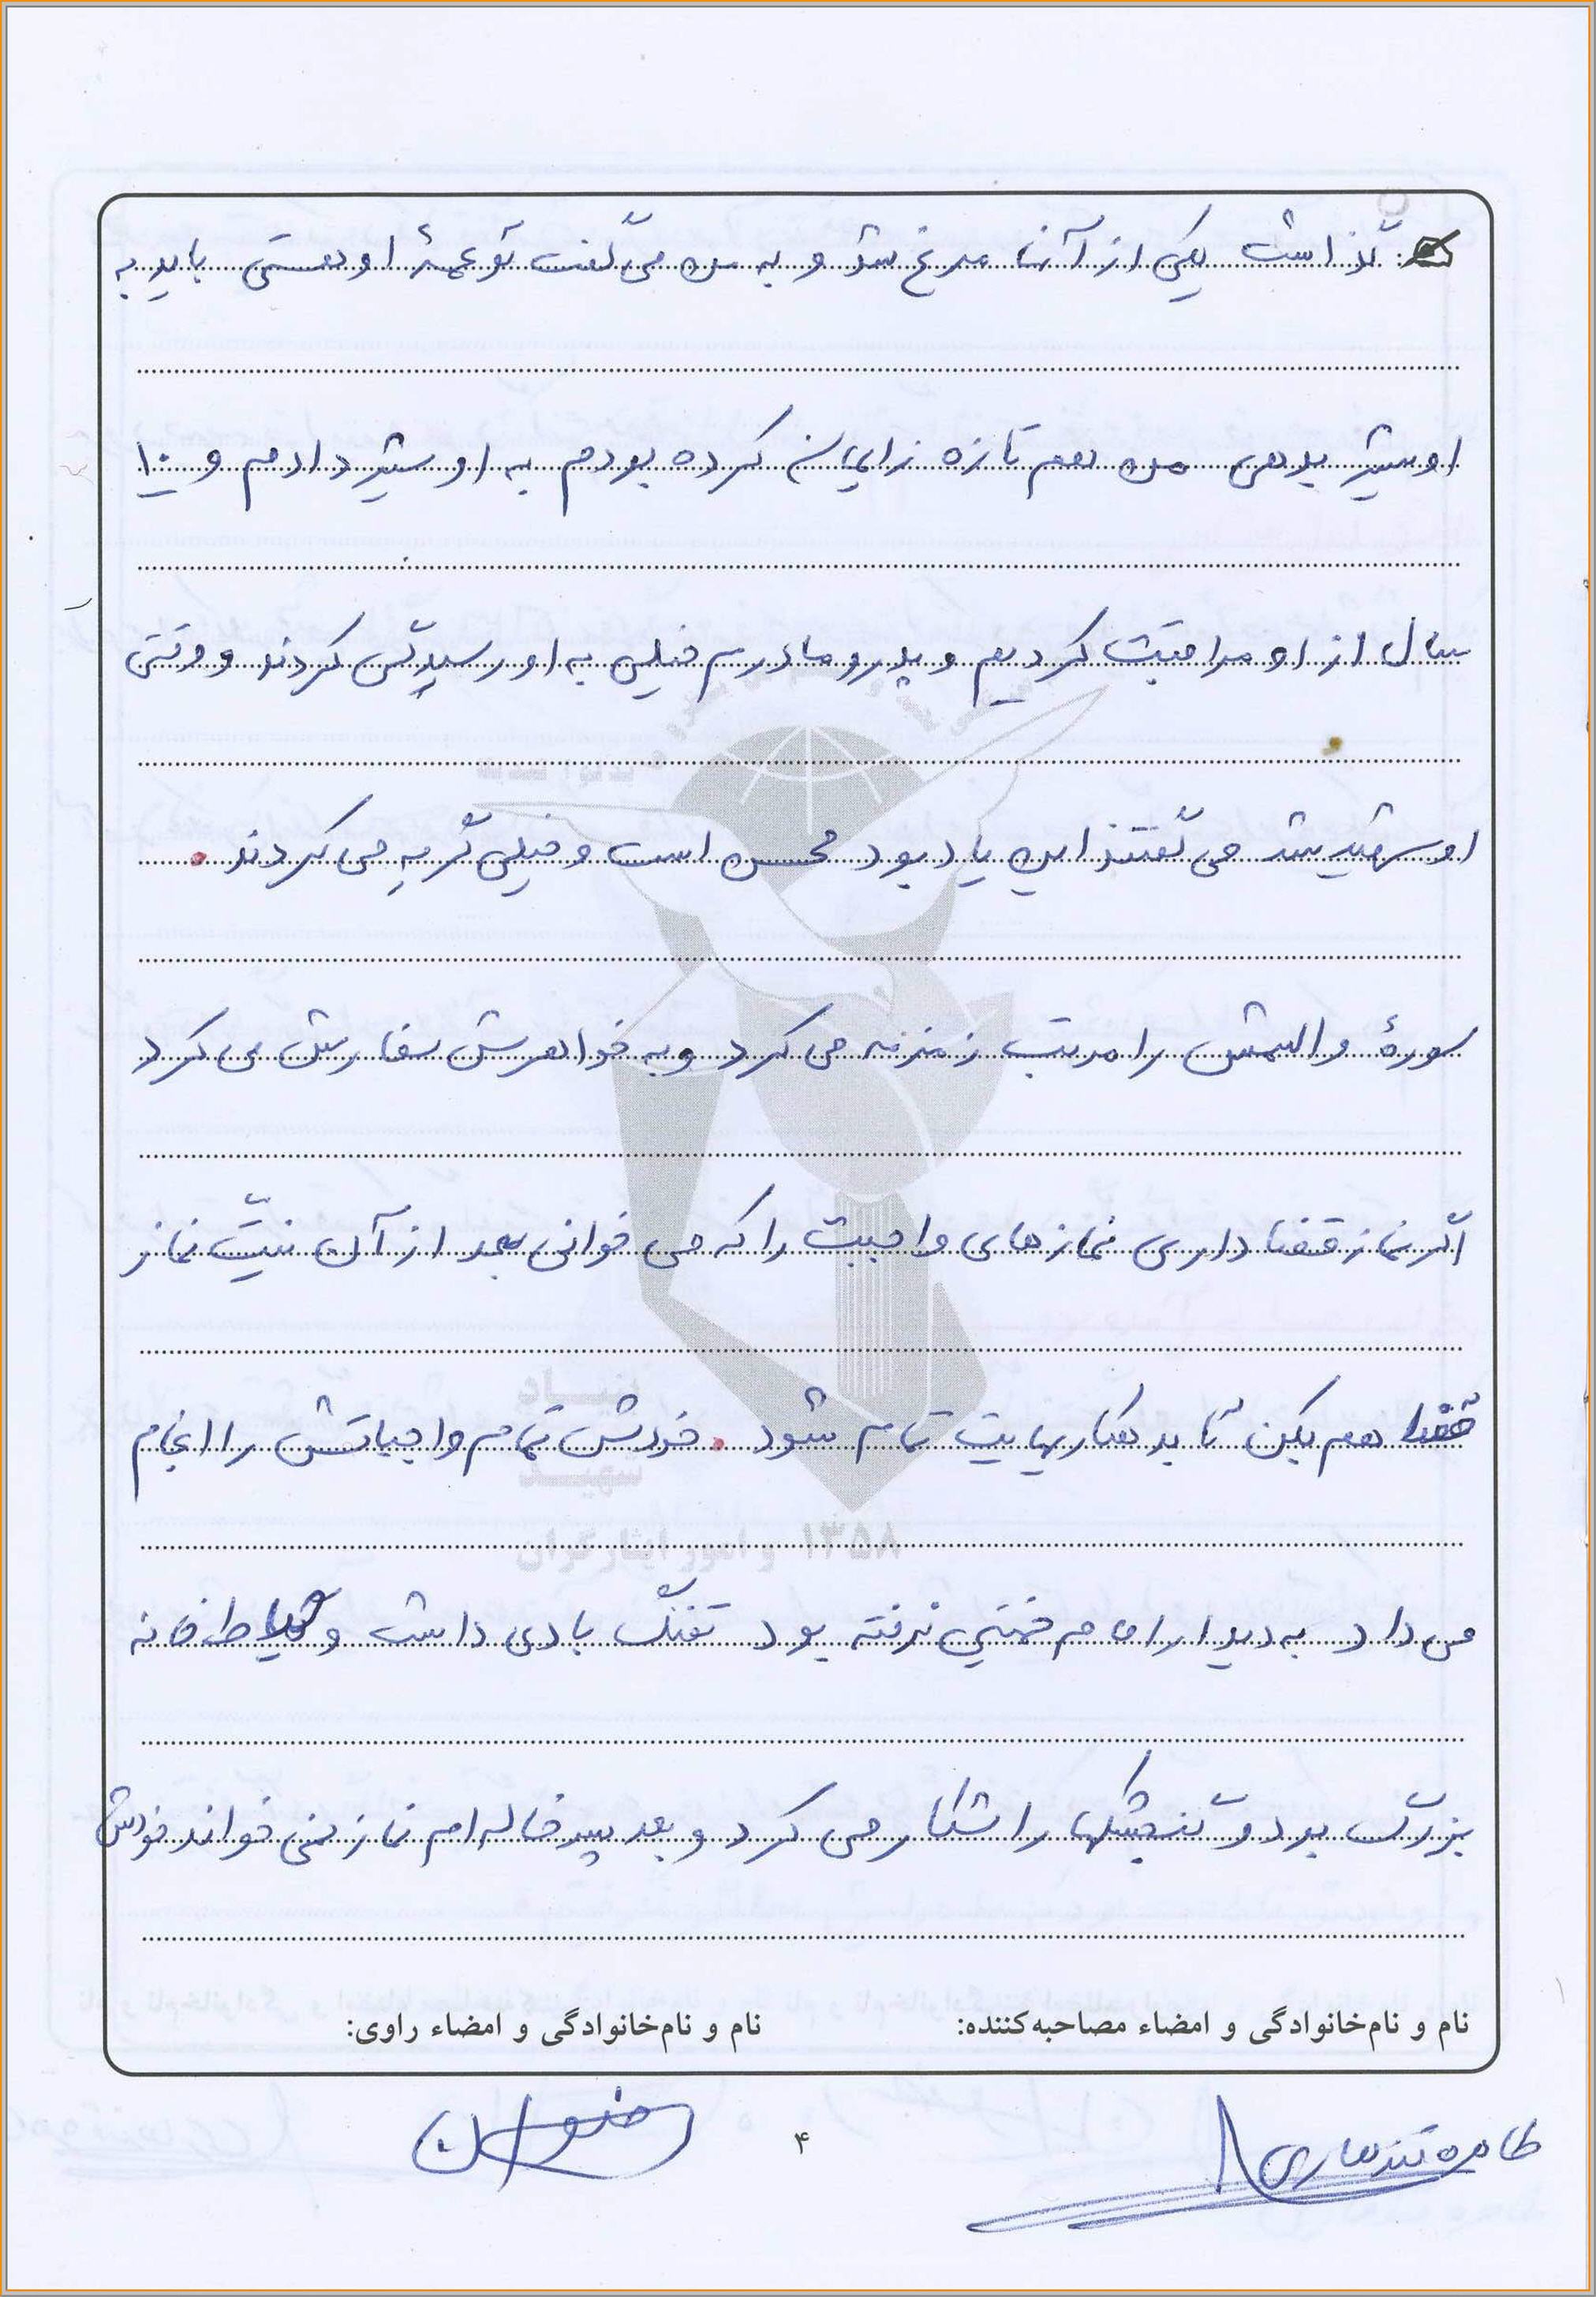 گذاشت یکی از آنها مرغ شد و به من می گفت تو عمهٔ او هستی باید به
او شیر بدهی من هم تازه زایمان کرده بودم به او شیر دادم و ۱۰
سال از او مراقبت کردیم و پدر و مادرم خیلی به او رسیدگی کردند و وقتی
او شهید شد می گفتند این یادبود محسن است و خیلی گریه می کردند.
سورهٔ والشمس را مرتب زمزمه می کرد و به خواهرش سفارش می کرد
اگر نماز قضا داری نمازهای واجبت را که می خوانی بعد از آن نیّت نماز
قضا هم بکن تا بدهکاریهایت تمام شود. خودش تمام واجباتش را انجام
می داد به دیدار امام خمینی نرفته بود تفنگ بادی داشت و حیاط خانه
بزرگ بود و گنجشکها را شکار می کرد و بعد پسر خاله ام نماز نمی خواند خودش
نام و نام‌خانوادگی و امضاء مصاحبه‌کننده: نام و نام‌خانوادگی و امضاء راوی:
طاهره قندهاری
۴
بنیاد
شهید
و امور ایثارگران ۱۳۵۸